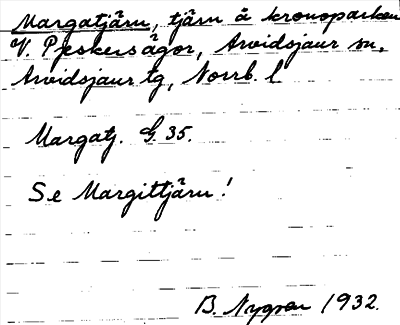 Margatjärn, tjärn å kronoparken
V. Pjeskers ägor, Arvidsjaur sn,
Arvidsjaur tg, Norrb. l
Margatj. G 35.
Se Margittjärn!
B. Nygren 1932.